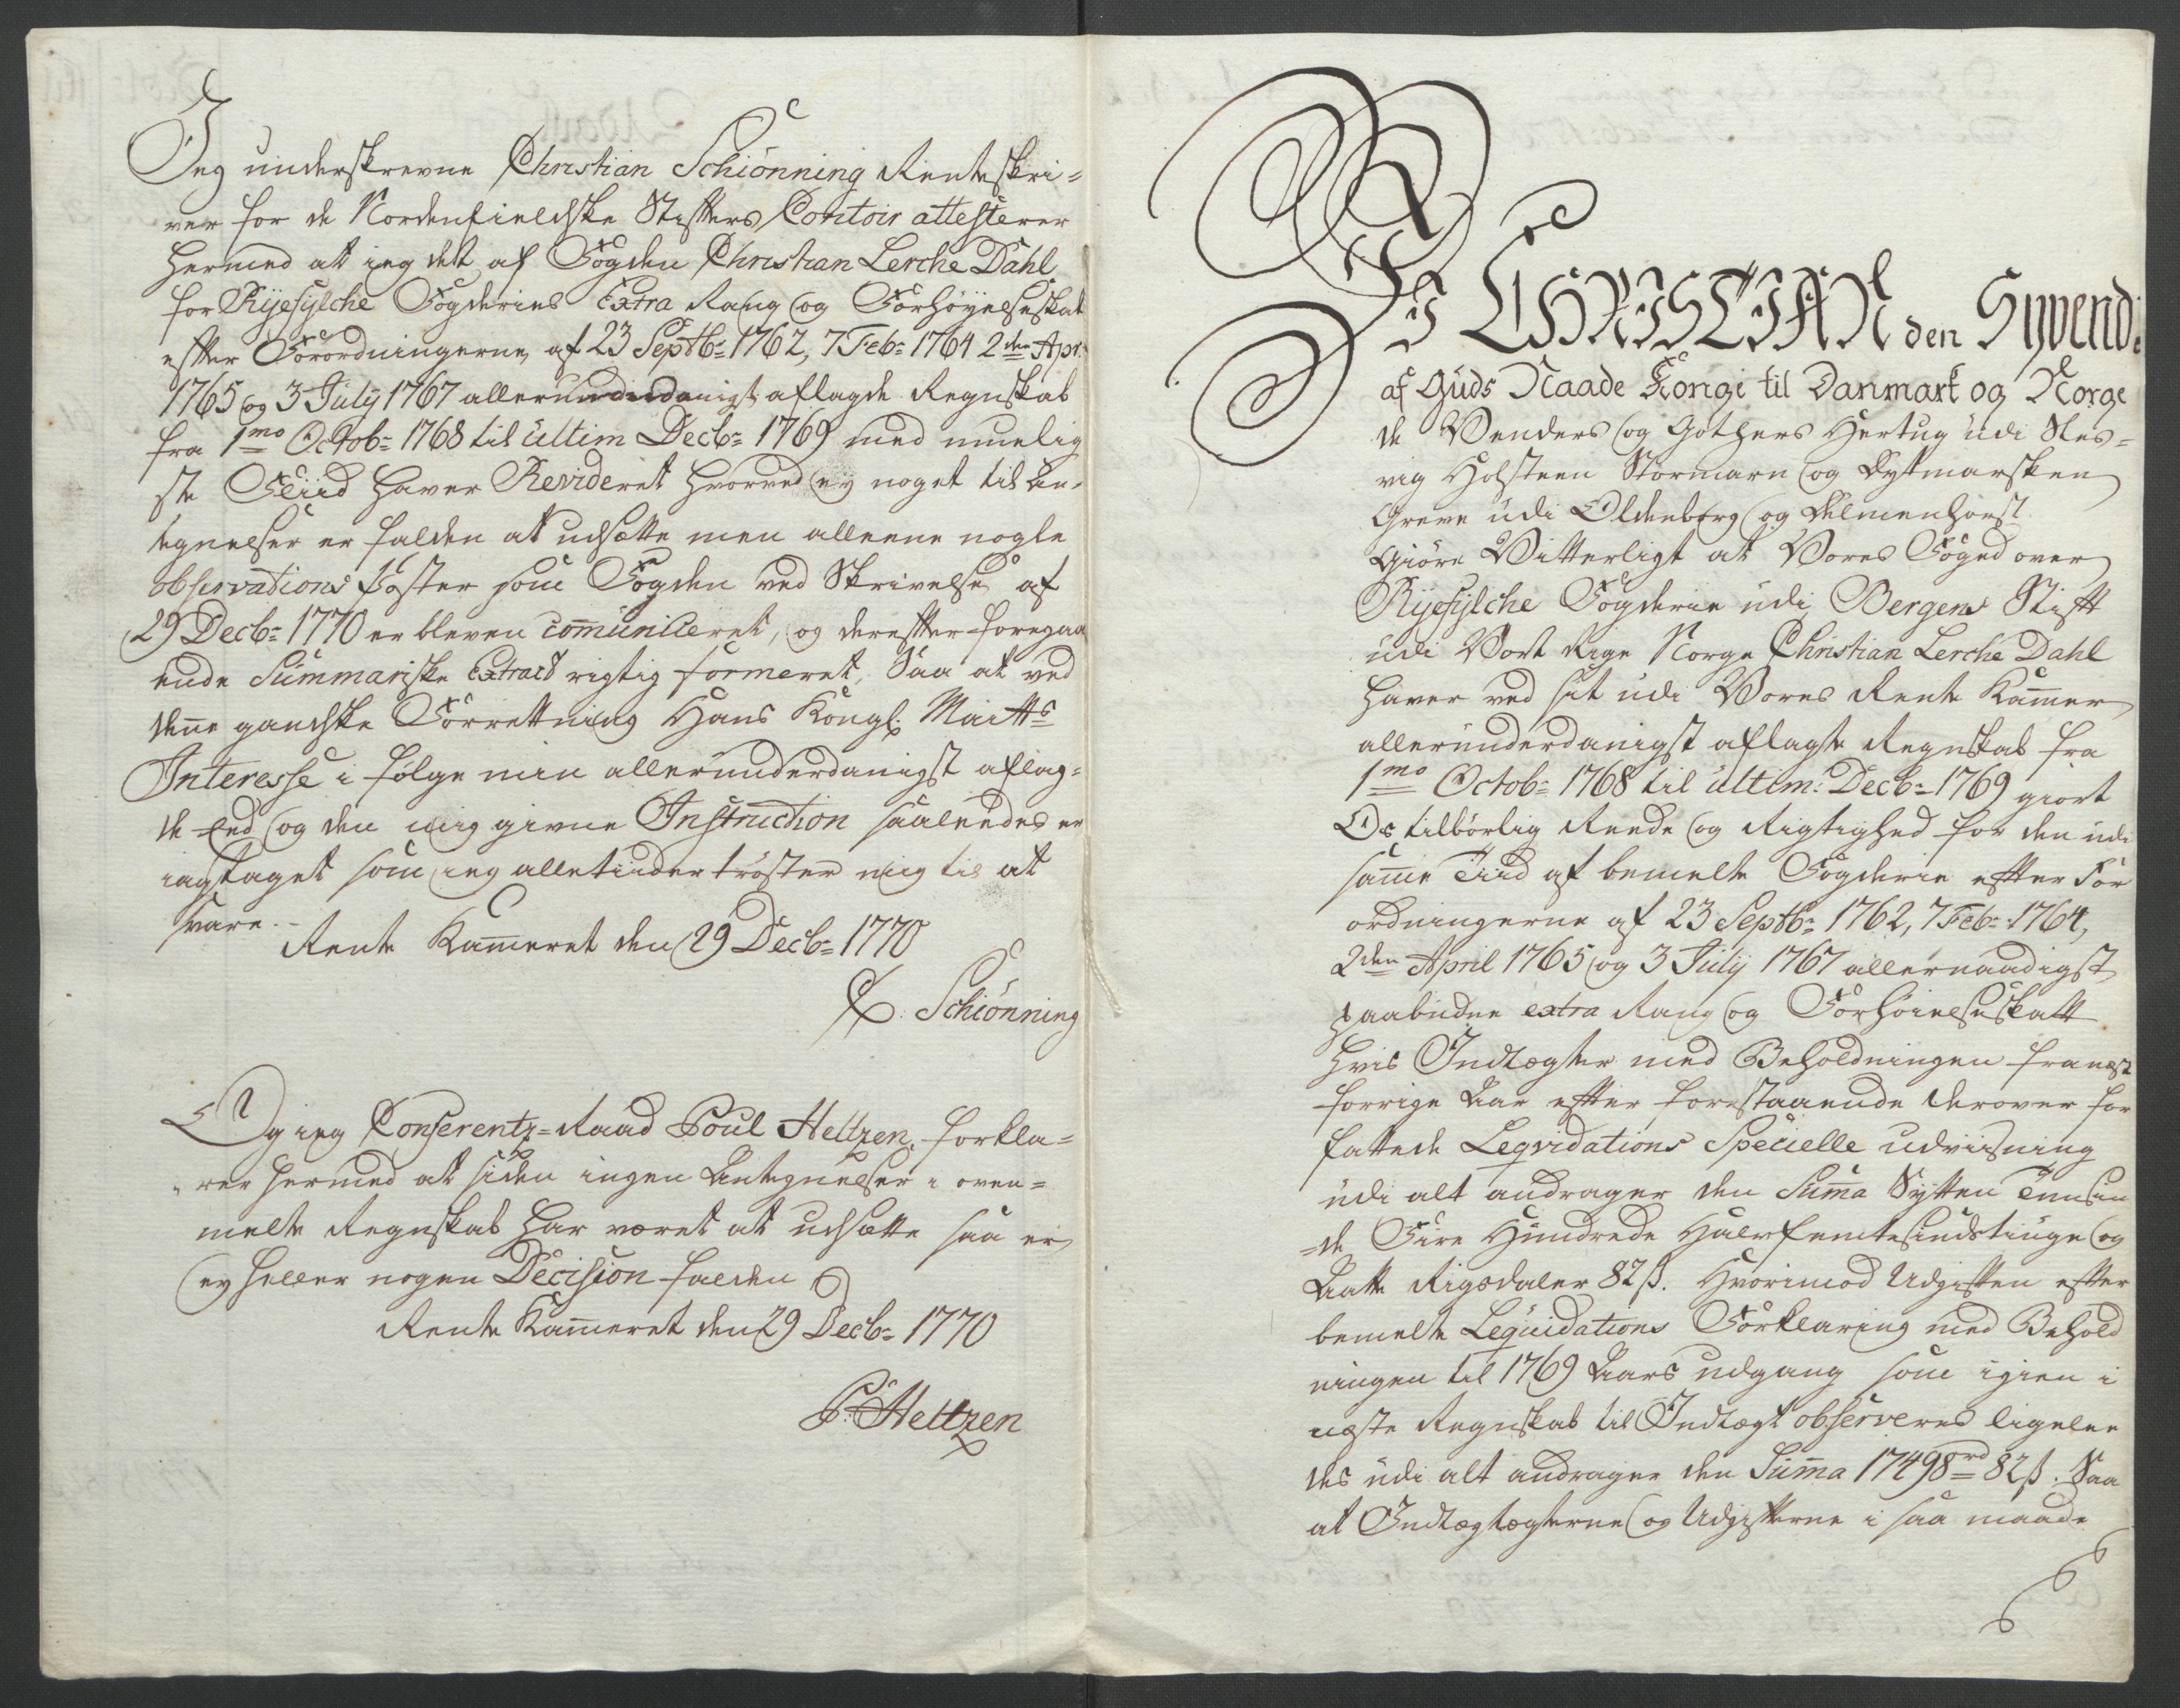 Jeg underskrevne Christian Schiönning Renteskri=
ver for de Nordenfieldske Stifters Contoir attesterer
hermed at jeg det af Fogden Christian Lerche Dahl
for Ryefylche Fogderies Extra Rang og Forhøyelseskat
efter Forordningerne af 23 Septb: 1762, 7 Feb: 1764 2den Apr:
1765 og 3 July 1767 allerunderdanigst aflagde Regnskab
fra 1mo Octob: 1768 til ultim Decb: 1769 med muelig
ste Fliid haver Revideret hvorved ey noget til An-
tegnelser er falden at udsætte men alleene nogle
observations Poster som Fogden ved Skrivelse af
29 Decb: 1770 er bleven communiceret, og derefter foregaa
ende Summariske Extract rigtig formeret, Saa at ved
denne gandske Forrettning Hans Kongl: Maitts
Interesse i følge min allerunderdanigst aflag=
de Eed og den mig givne Instruction saaleedes er
iagttaget som jeg alletiider trøster mig til at
svare.-
Rente Kammeret den 29 Decb: 1770
C: Schiönning
Og jeg Conferentz=Raad Poul Heltzen forkla=
rer hermed at siden ingen Antegnelser i oven=
melte Regnskab har været at udsætte saa er
ey heller nogen Decision falden
Rente Kammeret den 29 Decb: 1770
P: Heltzen
Vi CHRISTIAN den Syvende
af Guds Naade Konge til Danmark og Norge
de Venders og Gothers Hertug udi Sles=
vig Holsteen Stormarn og Dytmarsken
Greve udi Oldenborg og Delmenhorst
Giøre Vitterligt at Vores Foged over
Ryefylche Fogderie udi Bergens Stift
udi Vort Rige Norge Christian Lerche Dahl
haver ved sit udi Vores Rente Kammer
allerunderdanigst aflagte Regnskab fra
1mo Octob: 1768 til ultim: Decb: 1769 giort
Os tilbørlig Reede og Rigtighed for den udi
samme Tiid af bemelte Fogderie efter For
ordningerne af 23 Septb: 1762, 7 Feb: 1764,
2den April 1765 og 3 July 1767 allernaadigst
paabudne extra Rang og Forhøielseskatt
hvis Indtægter med Beholdningen fra næst
forrige Aar efter forestaaende derover for
fattede Leqvidations Specielle udviisning
udi alt andrager den Summa Sytten Tusin
=de Fire Hundrede Halvfemtesindstiuge og
Aatte Rigsdaler 82 ß. Hvorimod Udgiften efter
bemelte Leqvidations Forklaring med Behold
ningen til 1769 Aars udgang som igien i
næste Regnskab til Indtægt observeres ligelee
des udi alt andrager den Summa 17498rd 82 ß. Saa
at Indtægtægterne og Udgifterne i saa maade